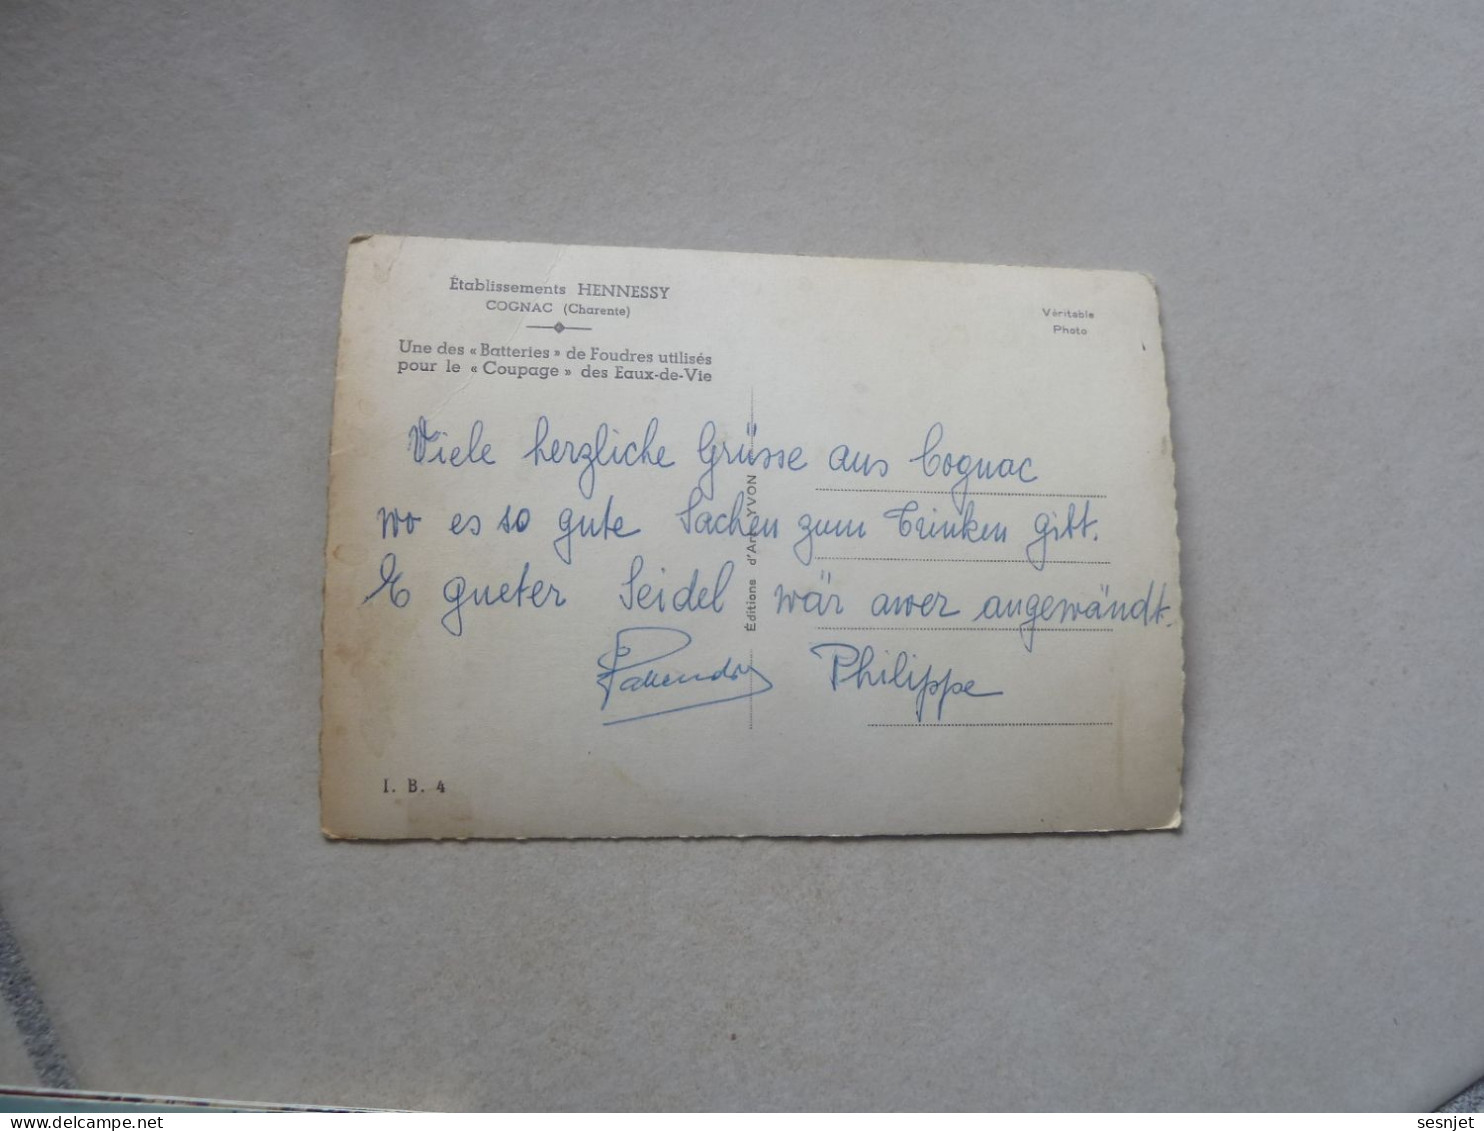 Établissements HENNESSY
COGNAC (Charente)
Une des « Batteries » de Foudres utilisés
pour le « Coupage » des Eaux-de-Vie
Véritable
Photo
Viele herzliche Grüsse aus Cognac
wo es so gute Sachen zum Trinken gitt.
E gueter Seidel wär awer angewändt.
Philippe
Éditions d'Art YVON
I. B. 4
sesnjet